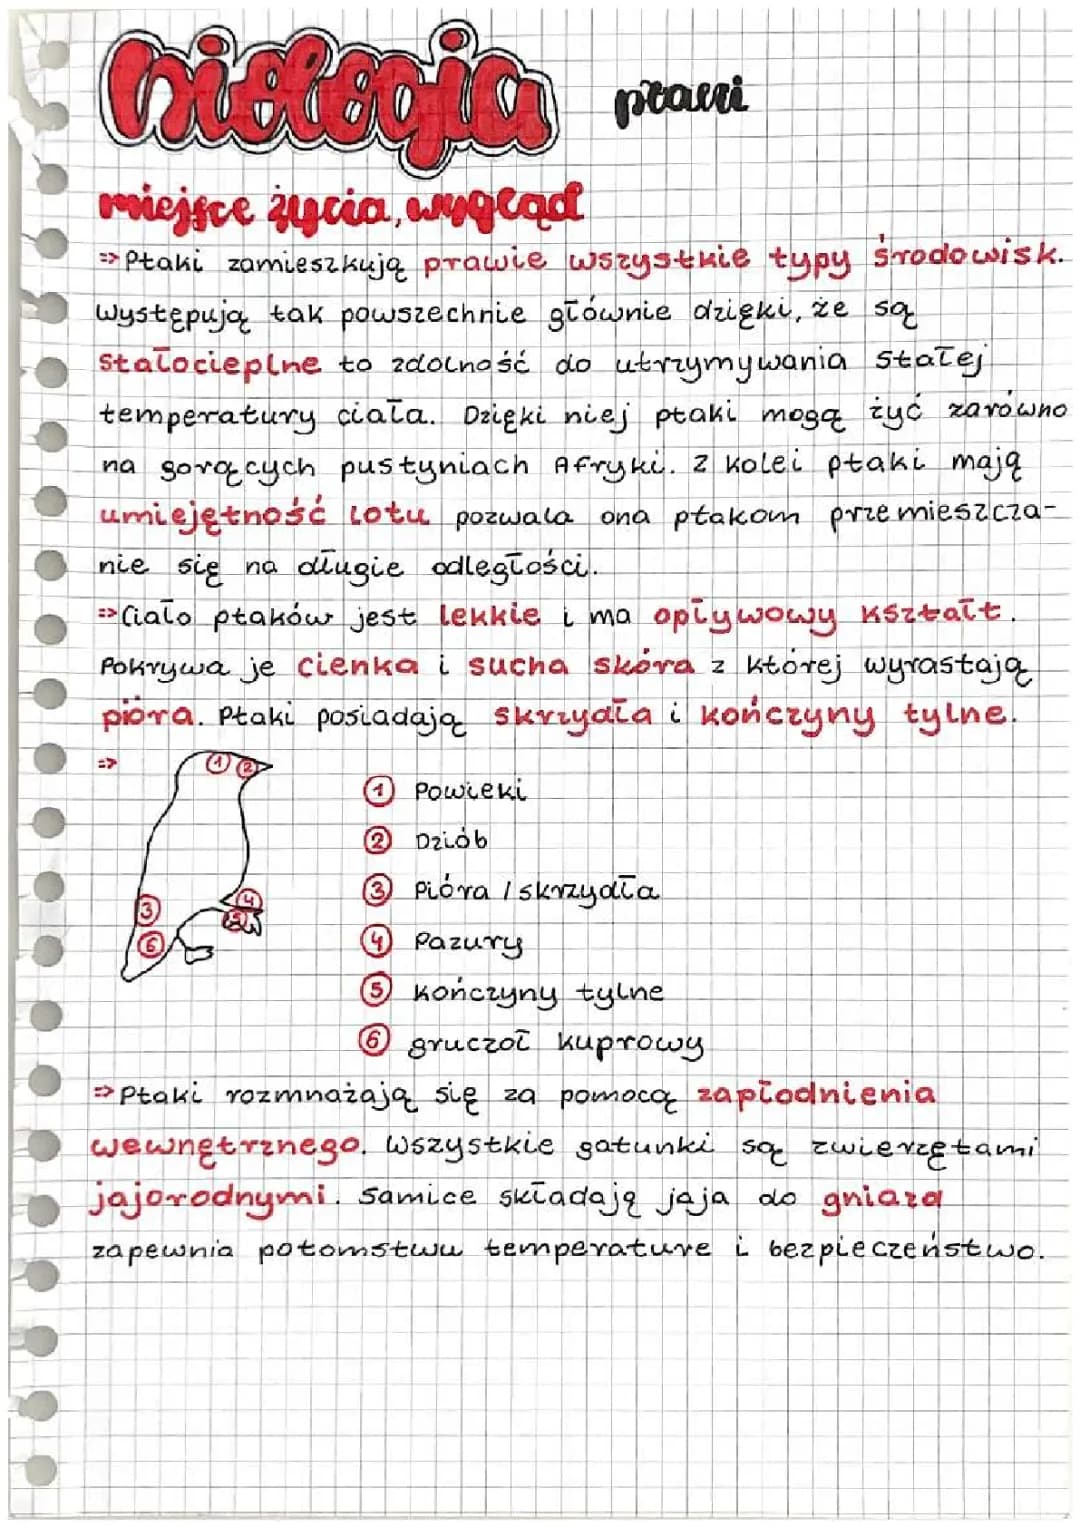 biologia ptaki
miejsce życia, wygląd
=> Ptaki zamieszkują prawie wszystkie typy środowisk.
Występują tak powszechnie głównie dzięki, że są
stałocieplne to zdolność do utrzymywania stałej
temperatury ciała. Dzięki niej ptaki mogą żyć zarówno
na gorących pustyniach Afryki. Z kolei ptaki mają
umiejętność lotu pozwala ona ptakom przemieszcza-
nie się na długie odległości.
=> Ciało ptaków jest lekkie i ma opływowy kształt.
Pokrywa je cienka i sucha skóra z której wyrastają
pióra. Ptaki posiadają skrzydła i kończyny tylne.
=> 1 2
1 Powieki
2 Dziób
3 Pióra / skrzydła
4 Pazury
5 kończyny tylne
6 gruczoł kuprowy
3 4
5
6
=> Ptaki rozmnażają się za pomocą zapłodnienia
wewnętrznego. Wszystkie gatunki są zwierzętami
jajorodnymi. Samice składają jaja do gniazd
zapewnia potomstwu temperature i bezpieczeństwo.